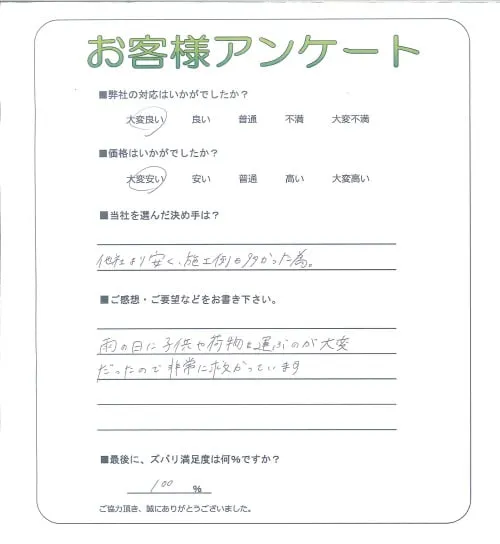 お客様アンケート
■弊社の対応はいかがでしたか？
大変良い 良い 普通 不満 大変不満
■価格はいかがでしたか？
大変安い 安い 普通 高い 大変高い
■当社を選んだ決め手は？
他社より安く、施工例も多かった為。
■ご感想・ご要望などをお書き下さい。
雨の日に子供や荷物を運ぶのが大変
だったので非常に助かっています
■最後に、ズバリ満足度は何％ですか？
100 ％
ご協力頂き、誠にありがとうございました。